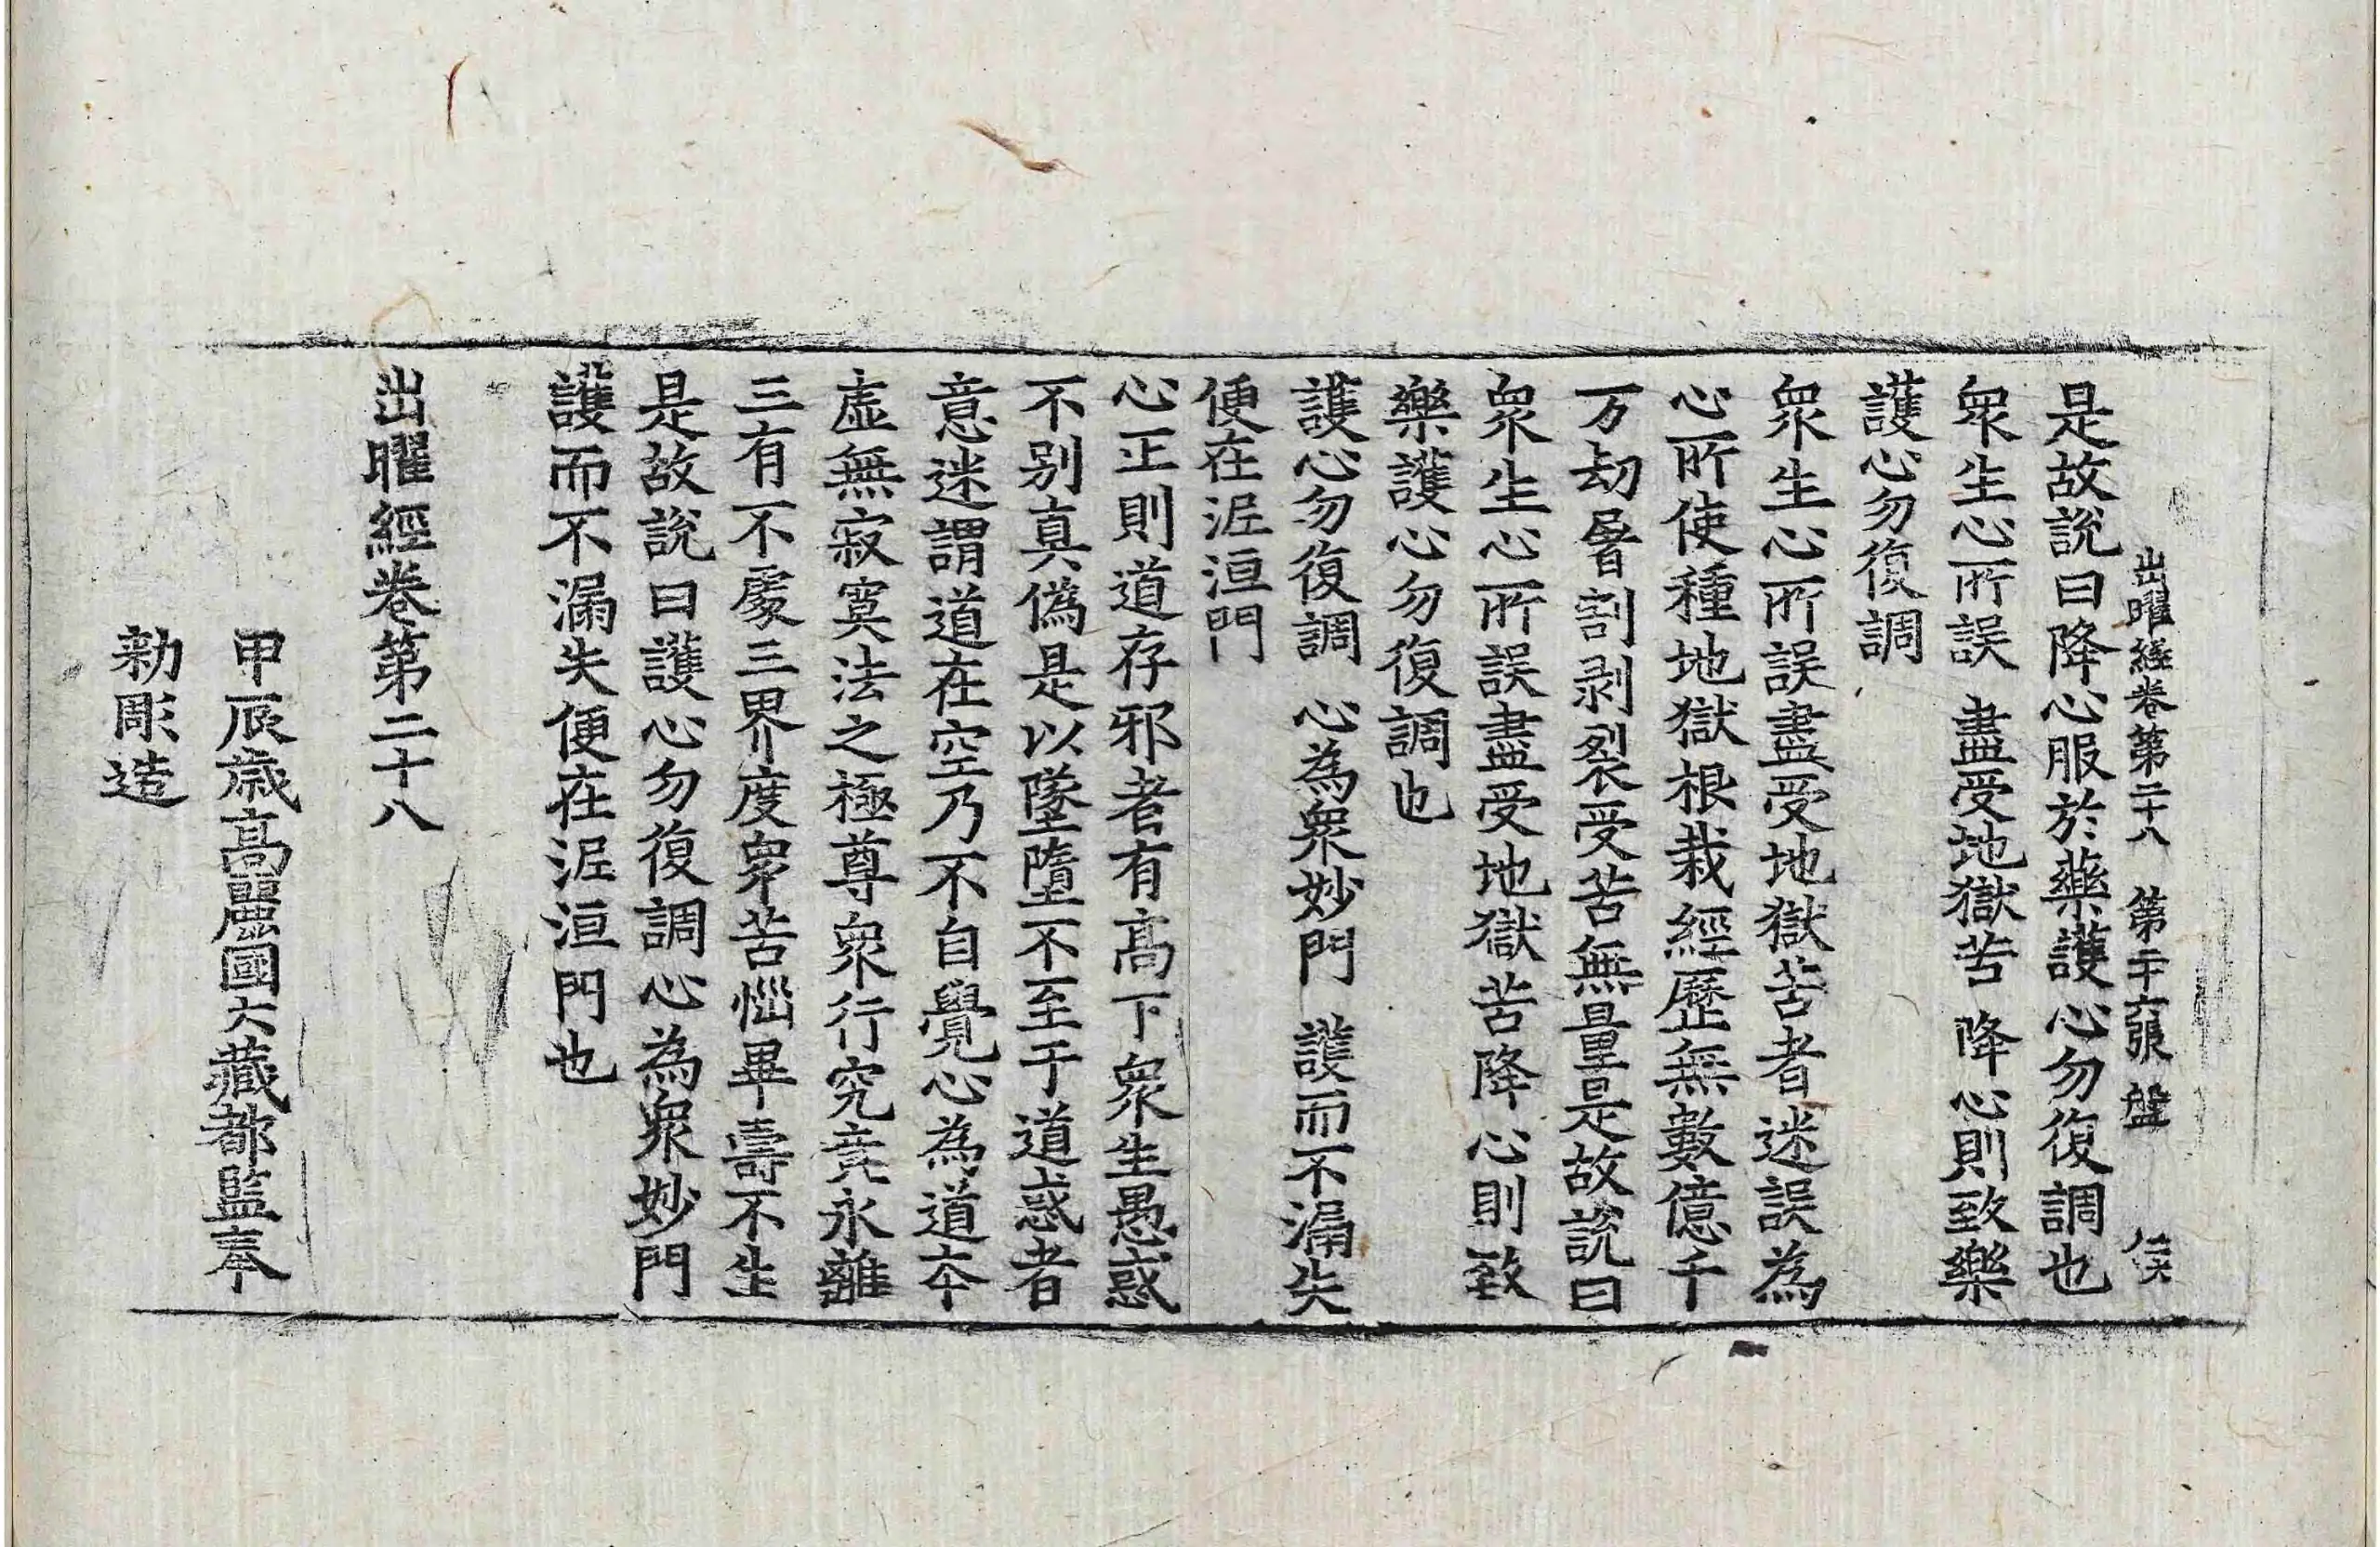 出曜經卷第二十八 第二十六張 盤
是故說曰降心服於藥護心勿復調也
衆生心所誤 盡受地獄苦 降心則致樂
護心勿復調
衆生心所誤盡受地獄苦者迷誤為
心所使種地獄根栽經歷無數億千
万劫屠割剥裂受苦無量是故說曰
衆生心所誤盡受地獄苦降心則致
樂護心勿復調也
護心勿復調 心為衆妙門 護而不漏失
便在泥洹門
心正則道存邪者有高下衆生愚惑
不別真偽是以墜墮不至于道惑者
意迷謂道在空乃不自覺心為道本
虛無寂寞法之極尊衆行究竟永離
三有不處三界度衆苦惱畢壽不生
是故說曰護心勿復調心為衆妙門
護而不漏失便在泥洹門也
出曜經卷第二十八
甲辰歲高麗國大藏都監奉
勑彫造